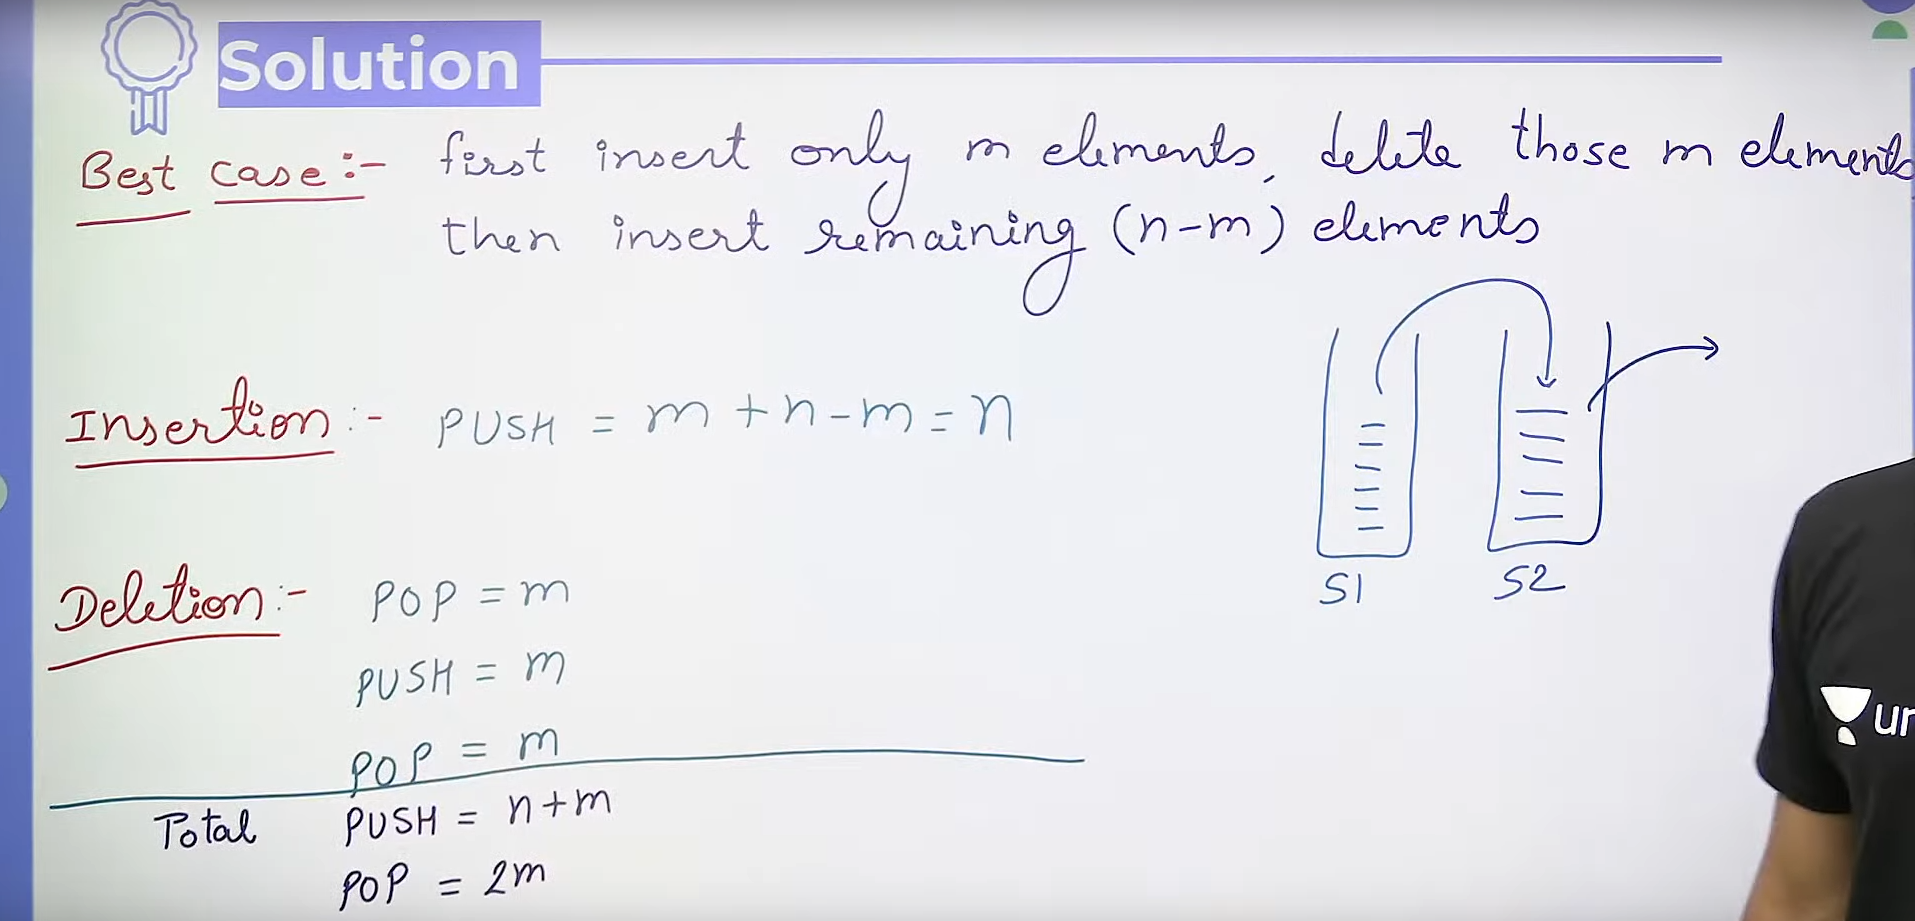 Solution
Best case :- first insert only m elements, delete those m elements
then insert remaining (n-m) elements
Insertion :- PUSH = m + n - m = n
Deletion :- POP = m
PUSH = m
POP = m
Total PUSH = n+m
POP = 2m
S1 S2
un